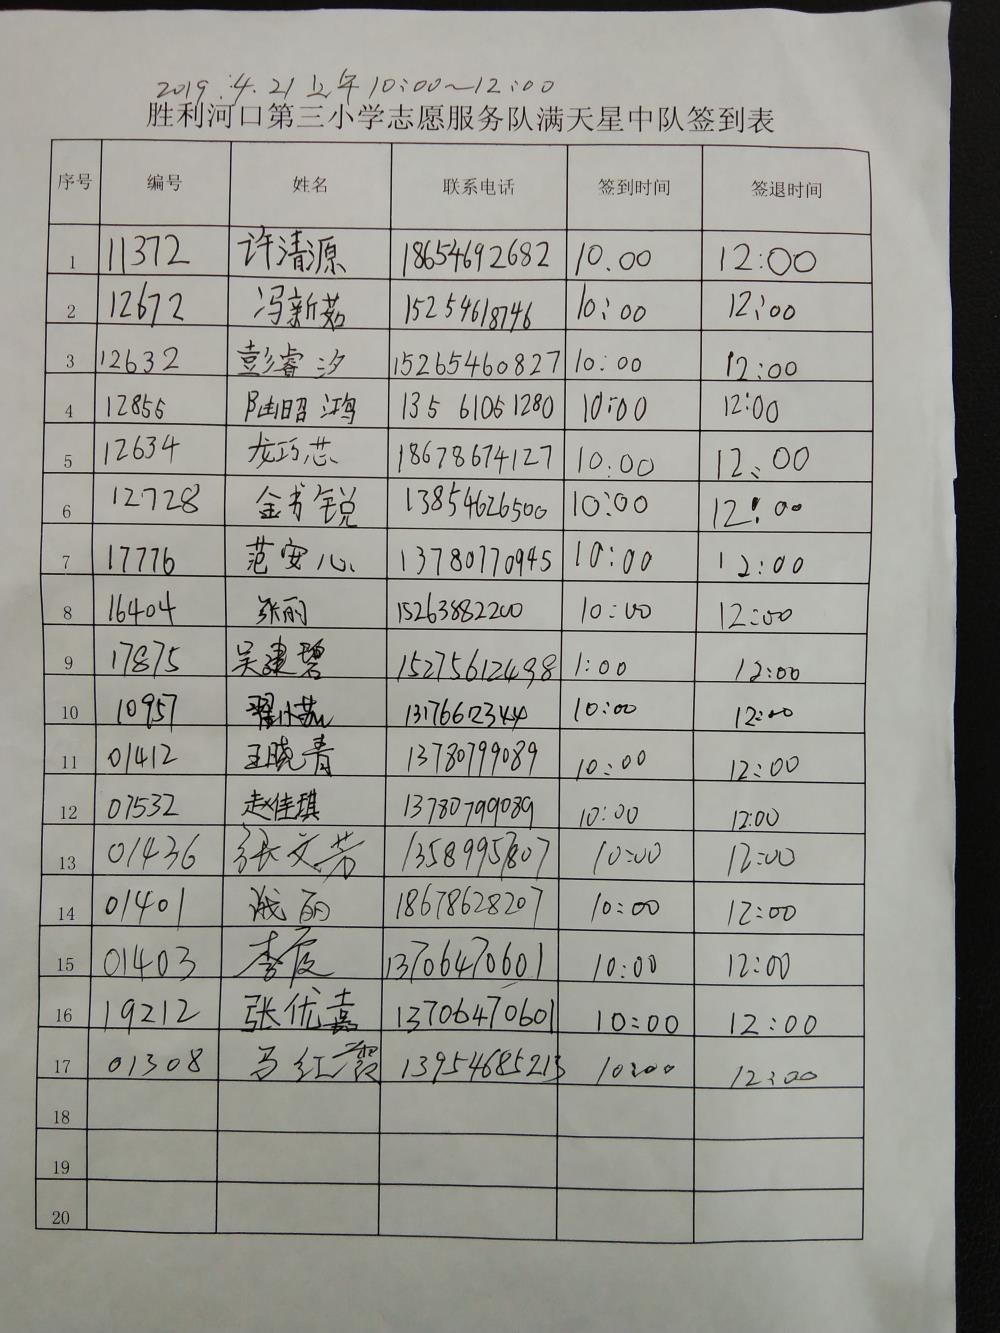 2019.4.21上午10:00~12:00
胜利河口第三小学志愿服务队满天星中队签到表
序号 编号 姓名 联系电话 签到时间 签退时间
1 11372 许清源 18654692682 10.00 12:00
2 12672 冯新茹 15254618746 10:00 12:00
3 12632 彭睿汐 15265460827 10:00 12:00
4 12855 陆昭鸿 13561051280 10:00 12:00
5 12634 龙巧芯 18678674127 10.00 12:00
6 12728 金书锐 13854626500 10:00 12:00
7 17776 范安心 13780770945 10:00 12:00
8 16404 张丽 15263882200 10:00 12:00
9 17875 吴建碧 15275612498 1:00 12:00
10 10957 13176612344 10:00 12:00
11 01412 王晓青 13780799089 10:00 12:00
12 07532 赵佳琪 13780799089 10:00 12:00
13 01436 张文芳 13589957807 10:00 12:00
14 01401 丽 18678628207 10:00 12:00
15 01403 李 13706470601 10:00 12:00
16 19212 张优嘉 13706470601 10:00 12:00
17 01308 马红霞 13954685213 10:00 12:00
18
19
20